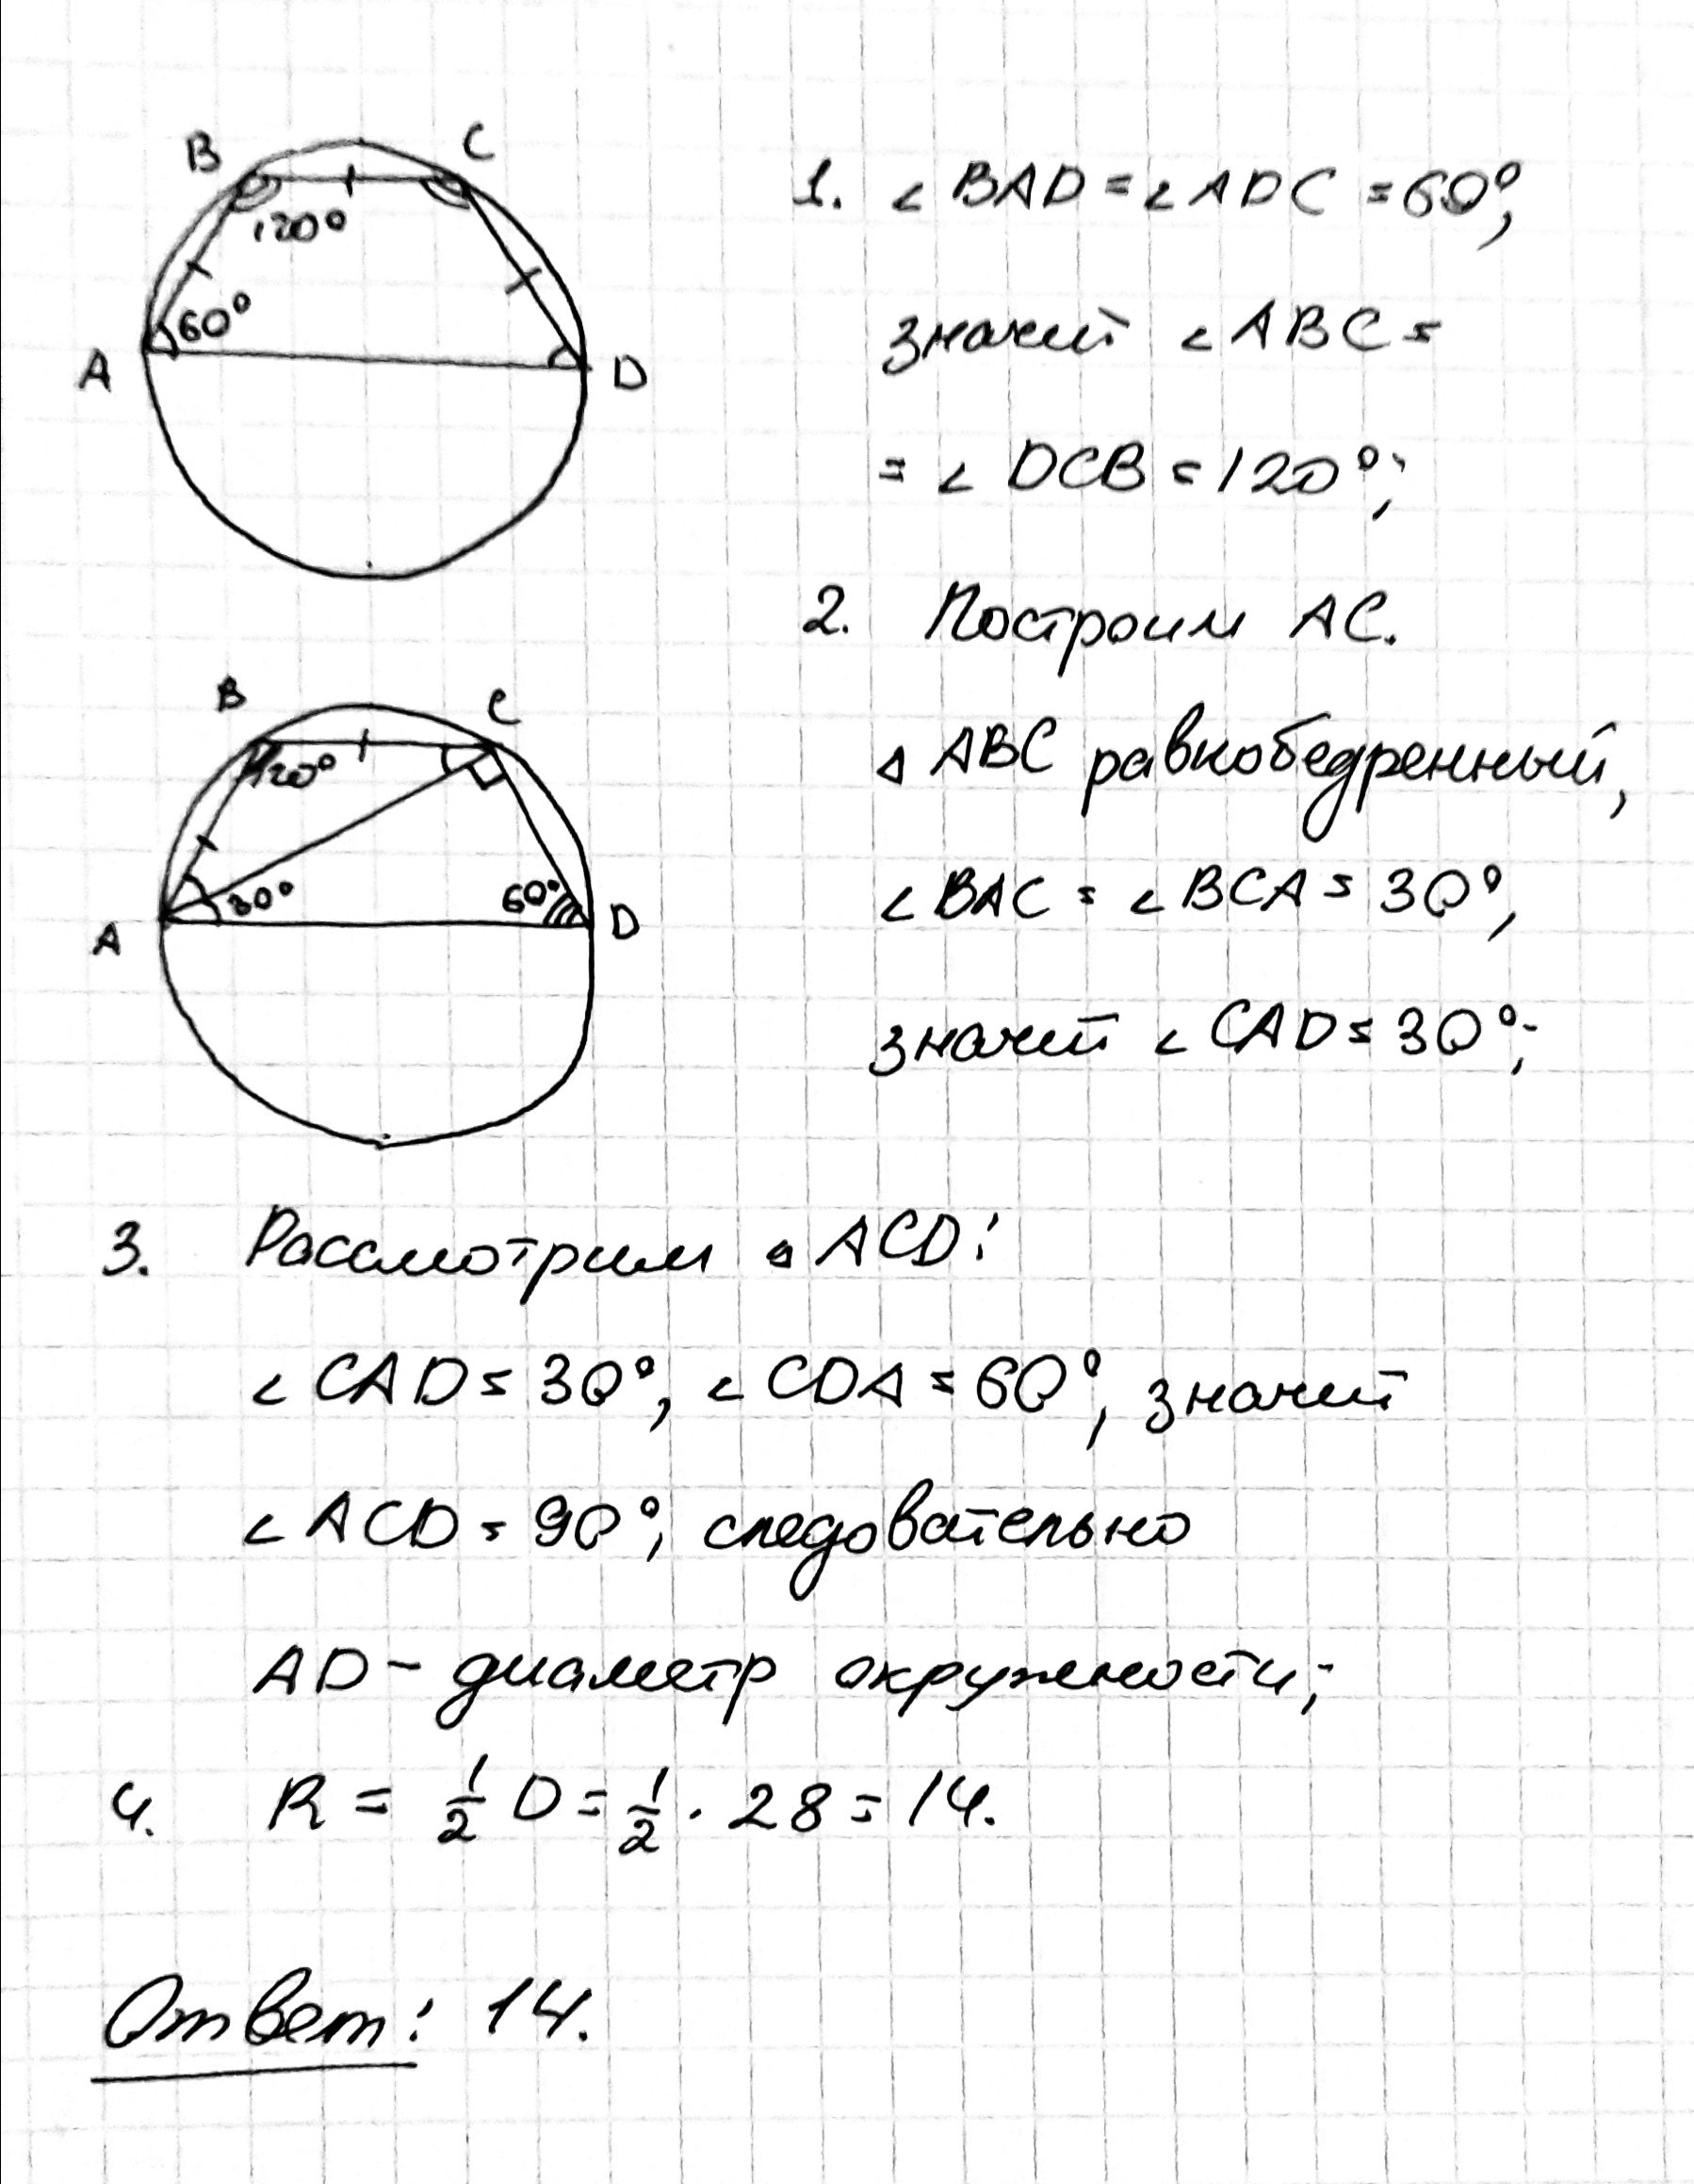 B
C
120°
60°
A
D
1. ∠ BAD = ∠ ADC = 60°,
значит ∠ ABC =
= ∠ DCB = 120°;
2. Построим AC.
△ ABC равнобедренный,
∠ BAC = ∠ BCA = 30°,
значит ∠ CAD = 30°;
B
C
120°
30°
60°
A
D
3. Рассмотрим △ ACD:
∠ CAD = 30°, ∠ CDA = 60°, значит
∠ ACD = 90°, следовательно
AD - диаметр окружности;
4. R = 1/2 D = 1/2 · 28 = 14.
Ответ: 14.